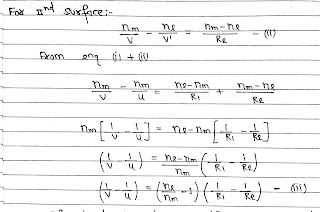 For IInd Surface:-
nm/V - nl/V' = nm-nl/R2 - (ii)
From enq (i) + (ii)
nm/V - nm/u = nl-nm/R1 + nm-nl/R2
nm [1/V - 1/u] = nl-nm [1/R1 - 1/R2]
(1/V - 1/u) = nl-nm/nm (1/R1 - 1/R2)
(1/V - 1/u) = (nl/nm - 1) (1/R1 - 1/R2) - (iii)